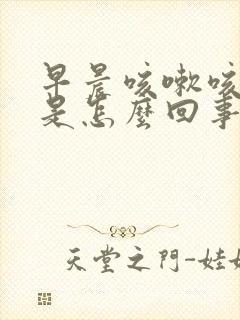 早晨咳嗽咳
是怎麼回事
天堂之門-娃娃